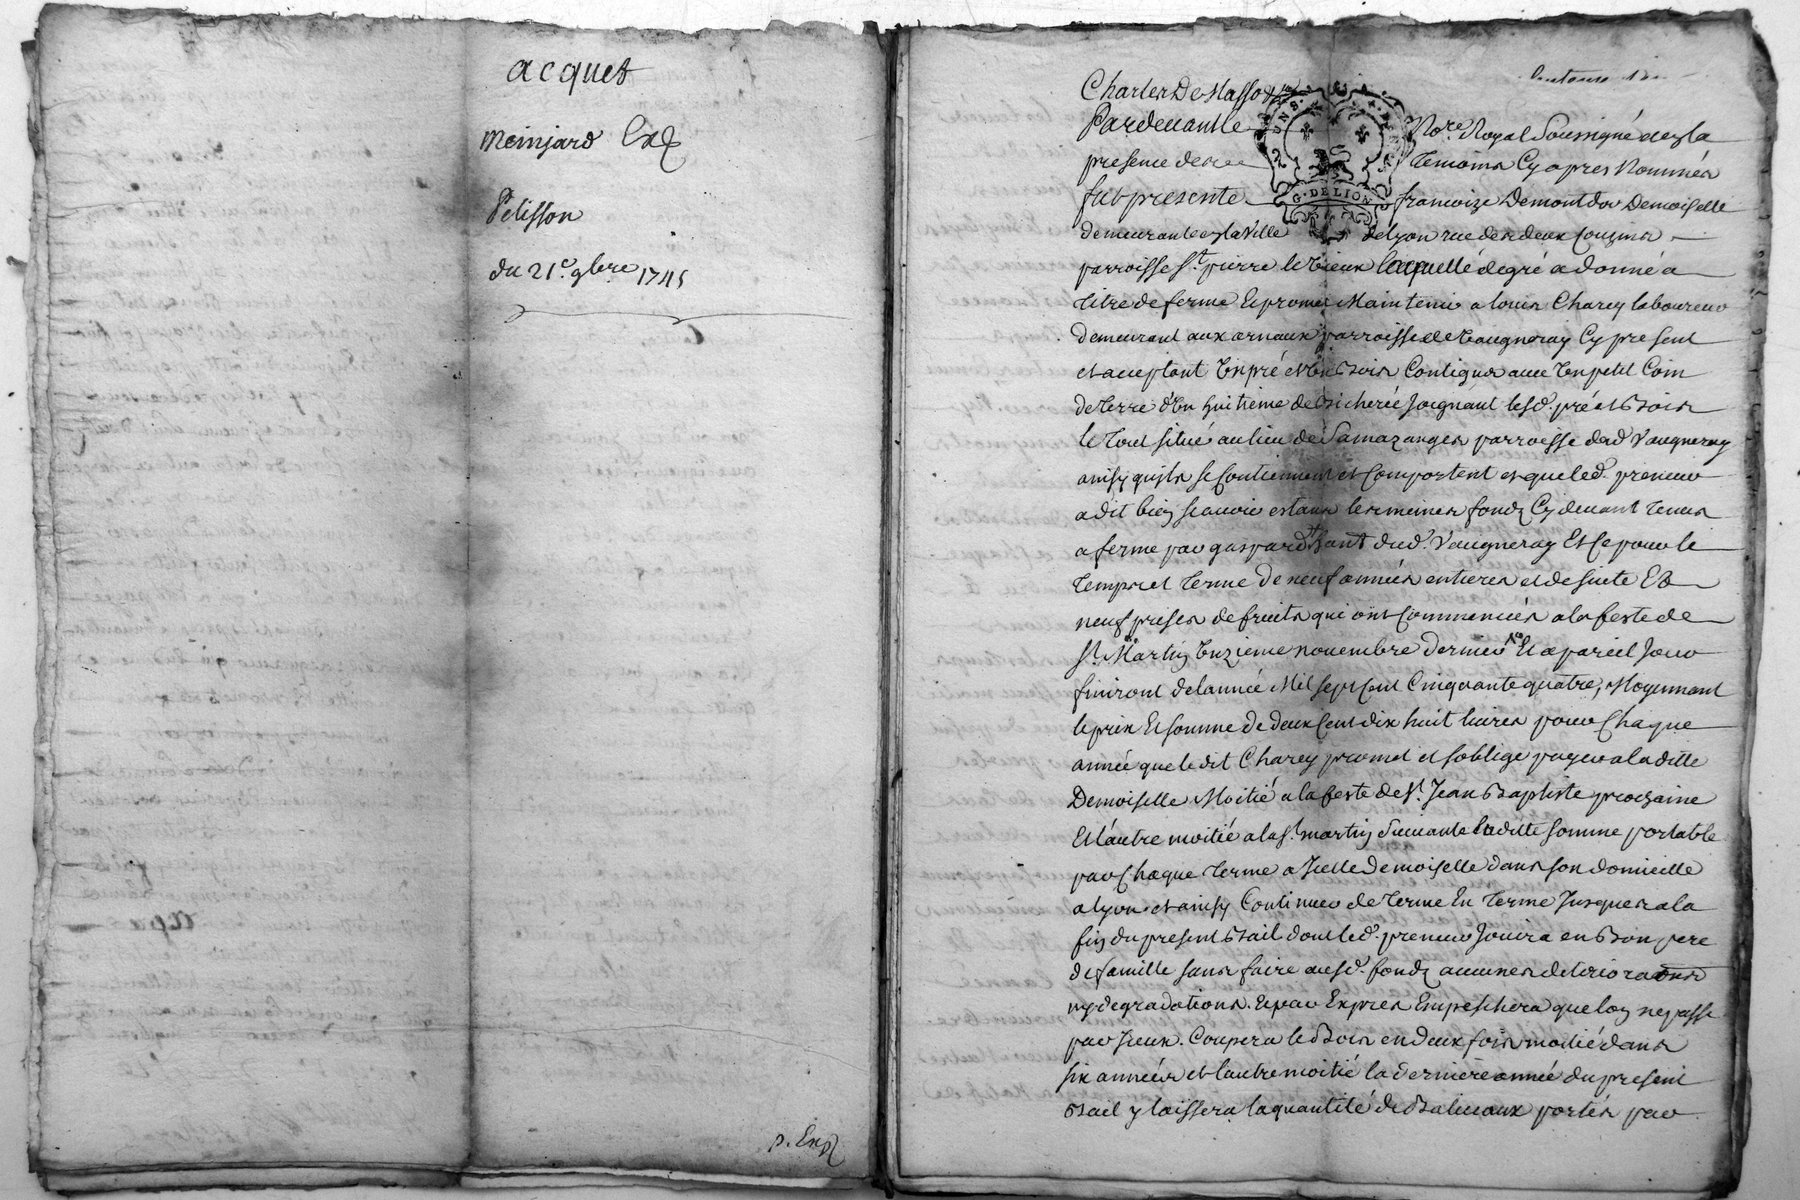 acquet
meinjard Exp
Pelisson
du 21e. 9bre 1745
p. Exp
Pardevant le Nore. Royal Soussigné et en la
presence des temoins Cy apres Nommés
fut presente francoize Demontdor Demoiselle
demeurante en la Ville de lyon rue des deux Couzins
parroisse St. pierre le vieux laquelle de gré a donné a
titre de ferme Et promet Maintenir a louis Charey laboureur
demeurant aux arnaux parroisse de Vaugneray Cy present
et acceptant Un pré et Un Bois Contigus avec Un petit Coin
de terre d'Un huitieme de Bicherée Joignant lesd. pré et Bois
le tout situé au lieu de Samazanges parroisse dud Vaugneray
ainsy quils se Contiennent et Comportent et que led. preneur
a dit bien scavoir estans les meines fonds Cy devant tenus
a ferme par gaspard dud. Vaugneray Et Ce pour le
temps et terme De neuf années entieres et de suite Et
neuf prises de fruits qui ont Commencées a la feste de
St. Martin Unzieme novembre dernier Et a pareil Jour
finiront de lannée Mil sept Cent Cinquante quatre, Moyennant
le prix Et somme de deux Cent dix huit livres pour Chaque
année que le dit Charey promet et soblige payer a la ditte
Demoiselle Moitié a la feste de St. Jean Baptiste prochaine
Et l'autre moitié a la St. martin Suivante la ditte somme portable
par Chaque terme a Icelle Demoiselle dans son domicille
a lyon et ainsy Continuer de terme En terme Jusques a la
fin du present Bail dont led. preneur Jouira en Bon pere
de famille sans faire ausd. fonds aucunes deteriorations
ny degradations. Et par Expres Empeschera que lon ne passe
par Iceux. Coupera le Bois en deux fois moitié dans
six années et l'autre moitié la derniere année du present
Bail y laissera la quantité de Baliveaux portés par
G. DE LION